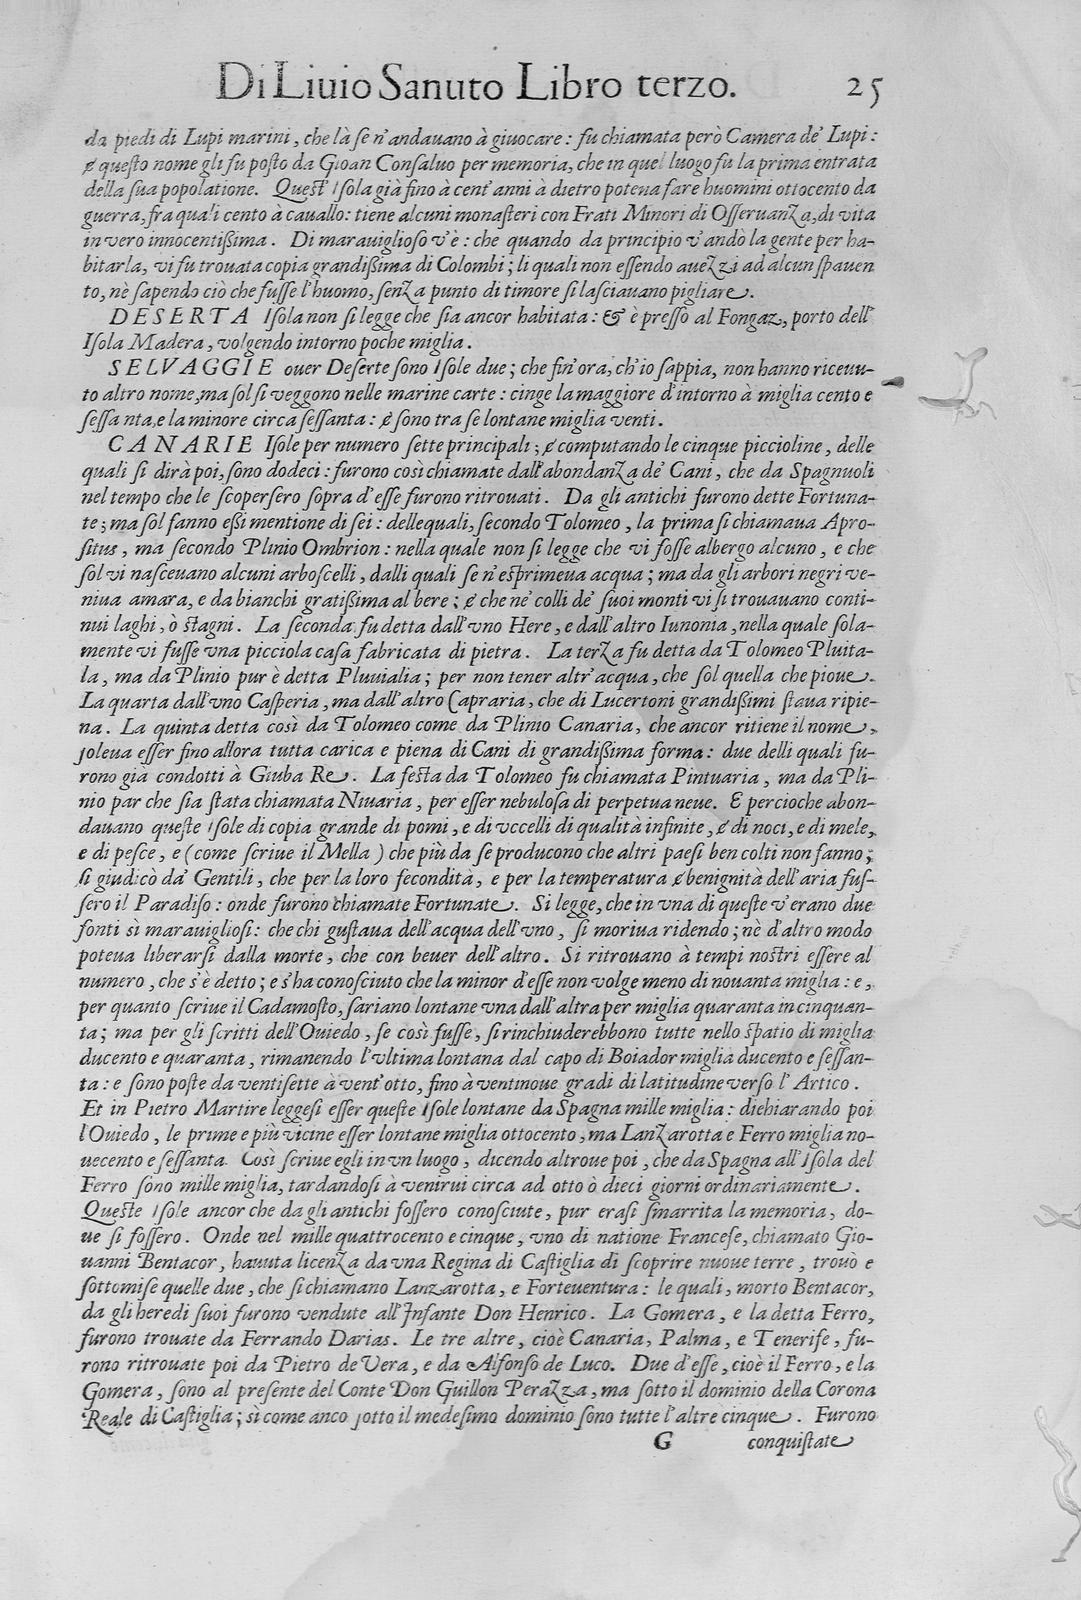 Di Liuio Sanuto Libro terzo. 25
da piedi di Lupi marini, che là se n'andauano à giuocare: fu chiamata però Camera de' Lupi:
& questo nome gli fu posto da Gioan Consaluo per memoria, che in quel luogo fu la prima entrata
della sua popolatione. Quest' Isola già fino à cent'anni à dietro poteua fare huomini ottocento da
guerra, fra quali cento à cauallo: tiene alcuni monasteri con Frati Minori di Osseruanza, di vita
in vero innocentißima. Di marauiglioso v'è: che quando da principio v'andò la gente per ha-
bitarla, vi fu trouata copia grandißima di Colombi; li quali non essendo auezzi ad alcun spauen
to, nè sapendo ciò che fusse l'huomo, senza punto di timore si lasciauano pigliare.
DESERTA Isola non si legge che sia ancor habitata: & è presso al Fongaz, porto dell'
Isola Madera, volgendo intorno poche miglia.
SELVAGGIE ouer Deserte sono Isole due; che fin'ora, ch'io sappia, non hanno riceuu-
to altro nome, ma sol si veggono nelle marine carte: cinge la maggiore d'intorno à miglia cento e
sessanta, e la minore circa sessanta: & sono tra se lontane miglia venti.
CANARIE Isole per numero sette principali; & computando le cinque piccioline, delle
quali si dirà poi, sono dodeci: furono così chiamate dall'abondanza de' Cani, che da Spagnuoli
nel tempo che le scopersero sopra d'esse furono ritrouati. Da gli antichi furono dette Fortuna-
te; ma sol fanno eßi mentione di sei: delle quali, secondo Tolomeo, la prima si chiamaua Apro-
situs, ma secondo Plinio Ombrion: nella quale non si legge che vi fosse albergo alcuno, e che
sol vi nasceuano alcuni arboscelli, dalli quali se n'esprimeua acqua; ma da gli arbori negri ve-
niua amara, e da bianchi gratißima al bere; & che ne' colli de' suoi monti vi si trouauano conti-
nui laghi, ò stagni. La seconda fu detta dall'vno Here, e dall'altro Iunonia, nella quale sola-
mente vi fusse vna picciola casa fabricata di pietra. La terza fu detta da Tolomeo Pluita-
la, ma da Plinio pur'è detta Pluuialia; per non tener altr'acqua, che sol quella che pioue.
La quarta dall'vno Casperia, ma dall'altro Capraria, che di Lucertoni grandißimi staua ripie-
na. La quinta detta così da Tolomeo come da Plinio Canaria, che ancor ritiene il nome,
soleua esser fino allora tutta carica e piena di Cani di grandißima forma: due delli quali fu-
rono già condotti à Giuba Re. La sesta da Tolomeo fu chiamata Pintuaria, ma da Pli-
nio par che sia stata chiamata Niuaria, per esser nebulosa di perpetua neue. E percioche abon-
dauano queste Isole di copia grande di pomi, e di vccelli di qualità infinite, & di noci, e di mele,
e di pesce, e (come scriue il Mella) che più da se producono che altri paesi ben colti non fanno;
si giudicò da' Gentili, che per la loro fecondità, e per la temperatura & benignità dell'aria fus-
sero il Paradiso: onde furono chiamate Fortunate. Si legge, che in vna di queste v'erano due
fonti sì marauigliosi: che chi gustaua dell'acqua dell'vno, si moriua ridendo; nè d'altro modo
poteua liberarsi dalla morte, che con beuer dell'altro. Si ritrouano à tempi nostri essere al
numero, che s'è detto; e s'ha conosciuto che la minor d'esse non volge meno di nouanta miglia: e,
per quanto scriue il Cadamosto, sariano lontane vna dall'altra per miglia quaranta in cinquan-
ta; ma per gli scritti dell'Ouiedo, se così fusse, si rinchiuderebbono tutte nello spatio di miglia
ducento e quaranta, rimanendo l'vltima lontana dal capo di Boiador miglia ducento e sessan-
ta: e sono poste da ventisette à vent'otto, fino à ventinoue gradi di latitudine verso l'Artico.
Et in Pietro Martire leggesi esser queste Isole lontane da Spagna mille miglia: dichiarando poi
l'Ouiedo, le prime e più vicine esser lontane miglia ottocento, ma Lanzarotta e Ferro miglia no-
uecento e sessanta. Così scriue egli in vn luogo, dicendo altroue poi, che da Spagna all'Isola del
Ferro sono mille miglia, tardandosi à venirui circa ad otto ò dieci giorni ordinariamente.
Queste Isole ancor che da gli antichi fossero conosciute, pur erasi smarrita la memoria, do-
ue si fossero. Onde nel mille quattrocento e cinque, vno di natione Francese, chiamato Gio-
uanni Bentacor, hauuta licenza da vna Regina di Castiglia di scoprire nuoue terre, trouò e
sottomise quelle due, che si chiamano Lanzarotta, e Forteuentura: le quali, morto Bentacor,
da gli heredi suoi furono vendute all'Infante Don Henrico. La Gomera, e la detta Ferro,
furono trouate da Ferrando Darias. Le tre altre, cioè Canaria, Palma, e Tenerife, fu-
rono ritrouate poi da Pietro de Vera, e da Alfonso de Luco. Due d'esse, cioè il Ferro, e la
Gomera, sono al presente del Conte Don Guillon Perazza, ma sotto il dominio della Corona
Reale di Castiglia; sì come anco sotto il medesimo dominio sono tutte l'altre cinque. Furono
G conquistate